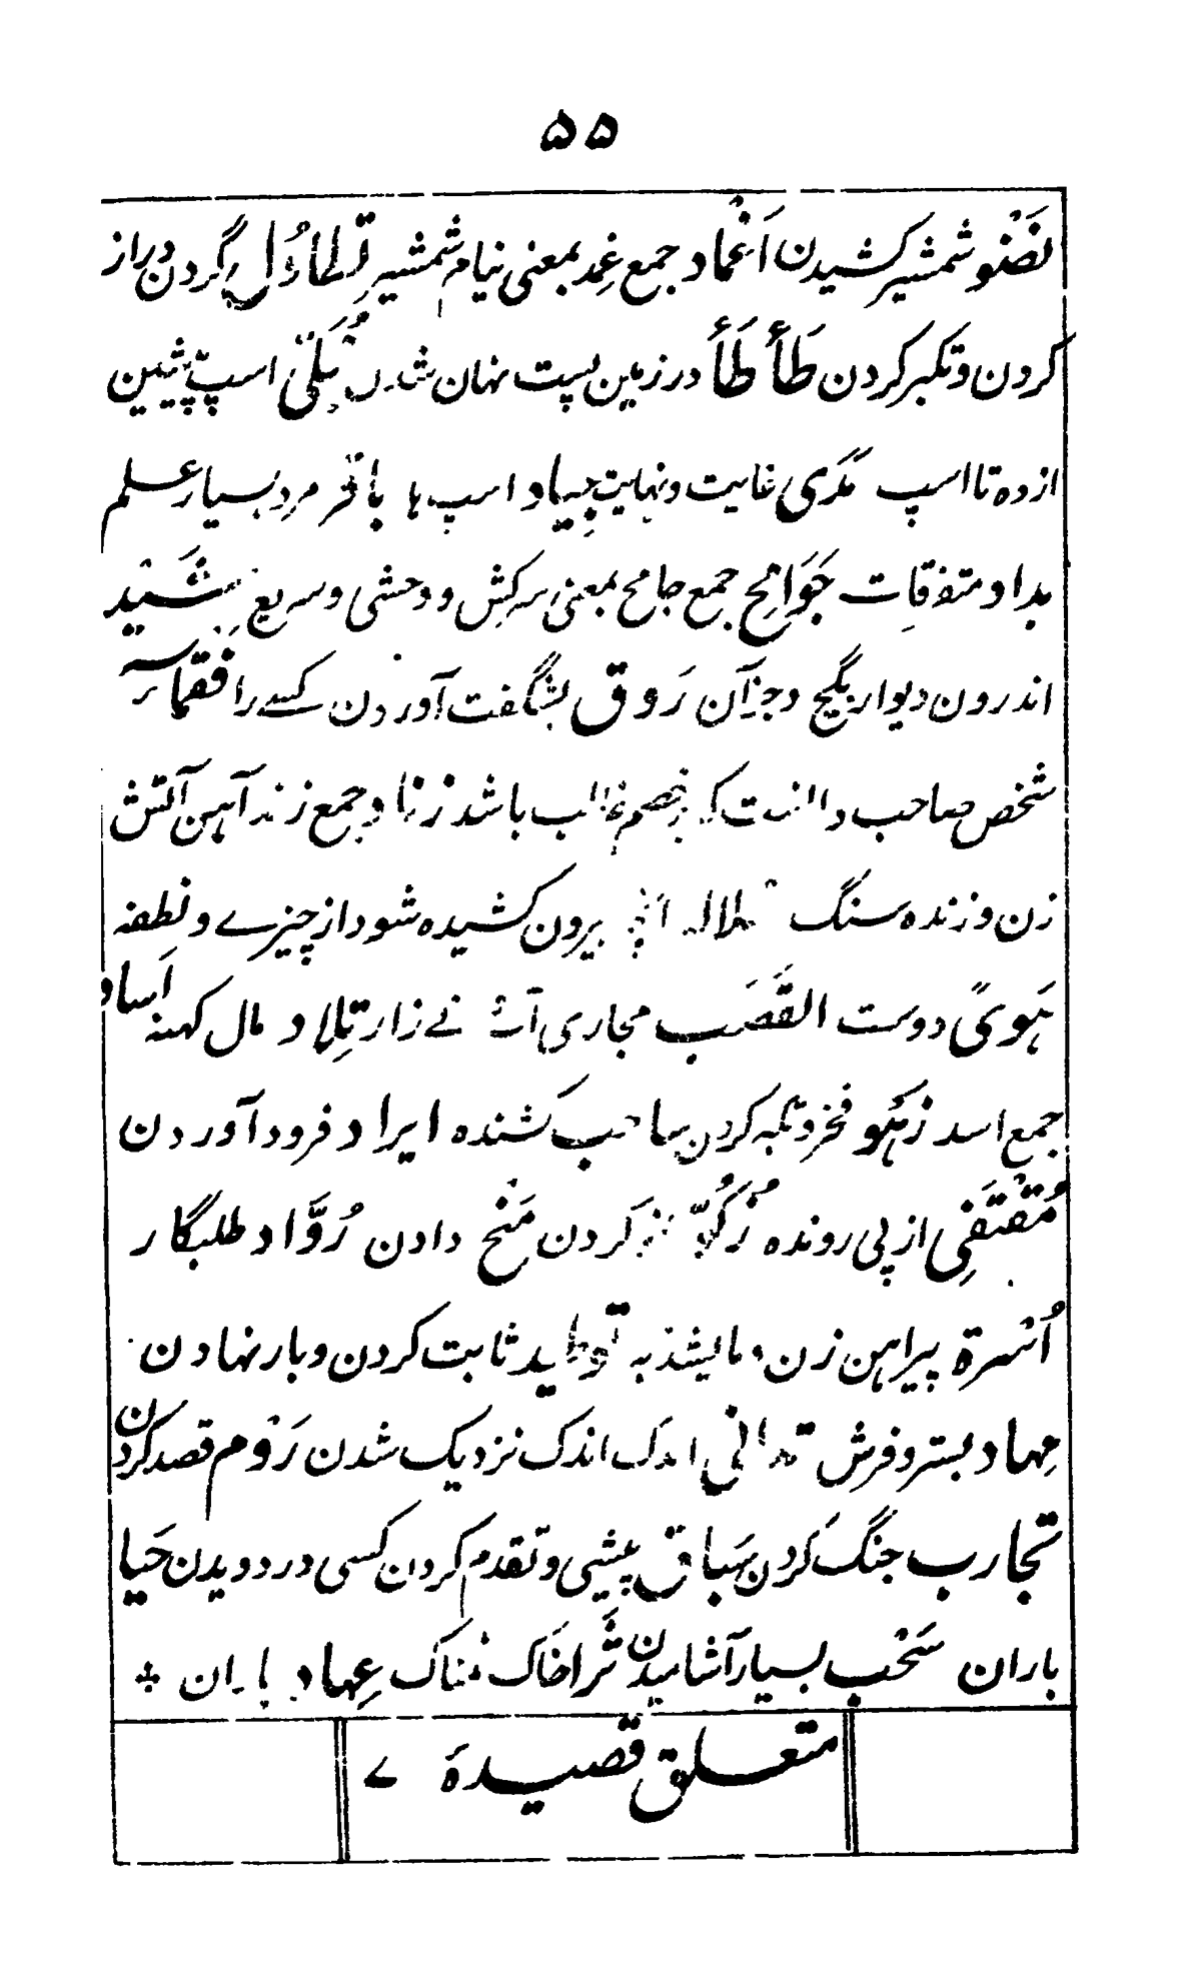 ۵۵
نَضْنو شمشیر کشیدن اَغْماد جمع غِمد بمعنی نیام شمشیر تطاوُل گردن دراز
کردن و تکبر کردن طَأطَأَ در زمین پست نهان شدن مُجَلّی اسپ پیشین
از ده تا اسپ مَدَی غایت و نهایت جِیاد اسپ ها باقر مرد بسیار علم
بداد متفرقات جَوَامح جمع جامح بمعنی سرکش و وحشی و سریع شَیْد
اندرون دیوار بگچ و جز آن رَوق بشگفت آوردن کسے را فقما
شخص صاحب که بخصم غالب باشد زناد جمع زند آهن آتش
زن و زنده سنگ سلاله آنچه بیرون کشیده شود از چیزے و نطفه
هَوِیً دوست القَصَب مجاری آب نے زار تِلاد مال کهنه اَساد
جمع اسد زَهْو فخر و تکبر کردن ساحب کشنده ایراد فرود آوردن
مُقْتَفِی از پی رونده زُکُوّ نمو کردن مَنْح دادن رُوَّاد طلبگار
اُسْرة پیراهن زن و مایشذ به توطید ثابت کردن و بار نهادن
مِهاد بستر و فرش تدانی اندک اندک نزدیک شدن رَوْم قصد کردن
تجارب جنگ کردن سَباق پیشی و تقدم کردن کسی در دویدن حَیا
باران سَحْب بسیار آشامیدن ثَرا خاک نمناک عِهاد باران *
متعلق قصیدهٔ ے